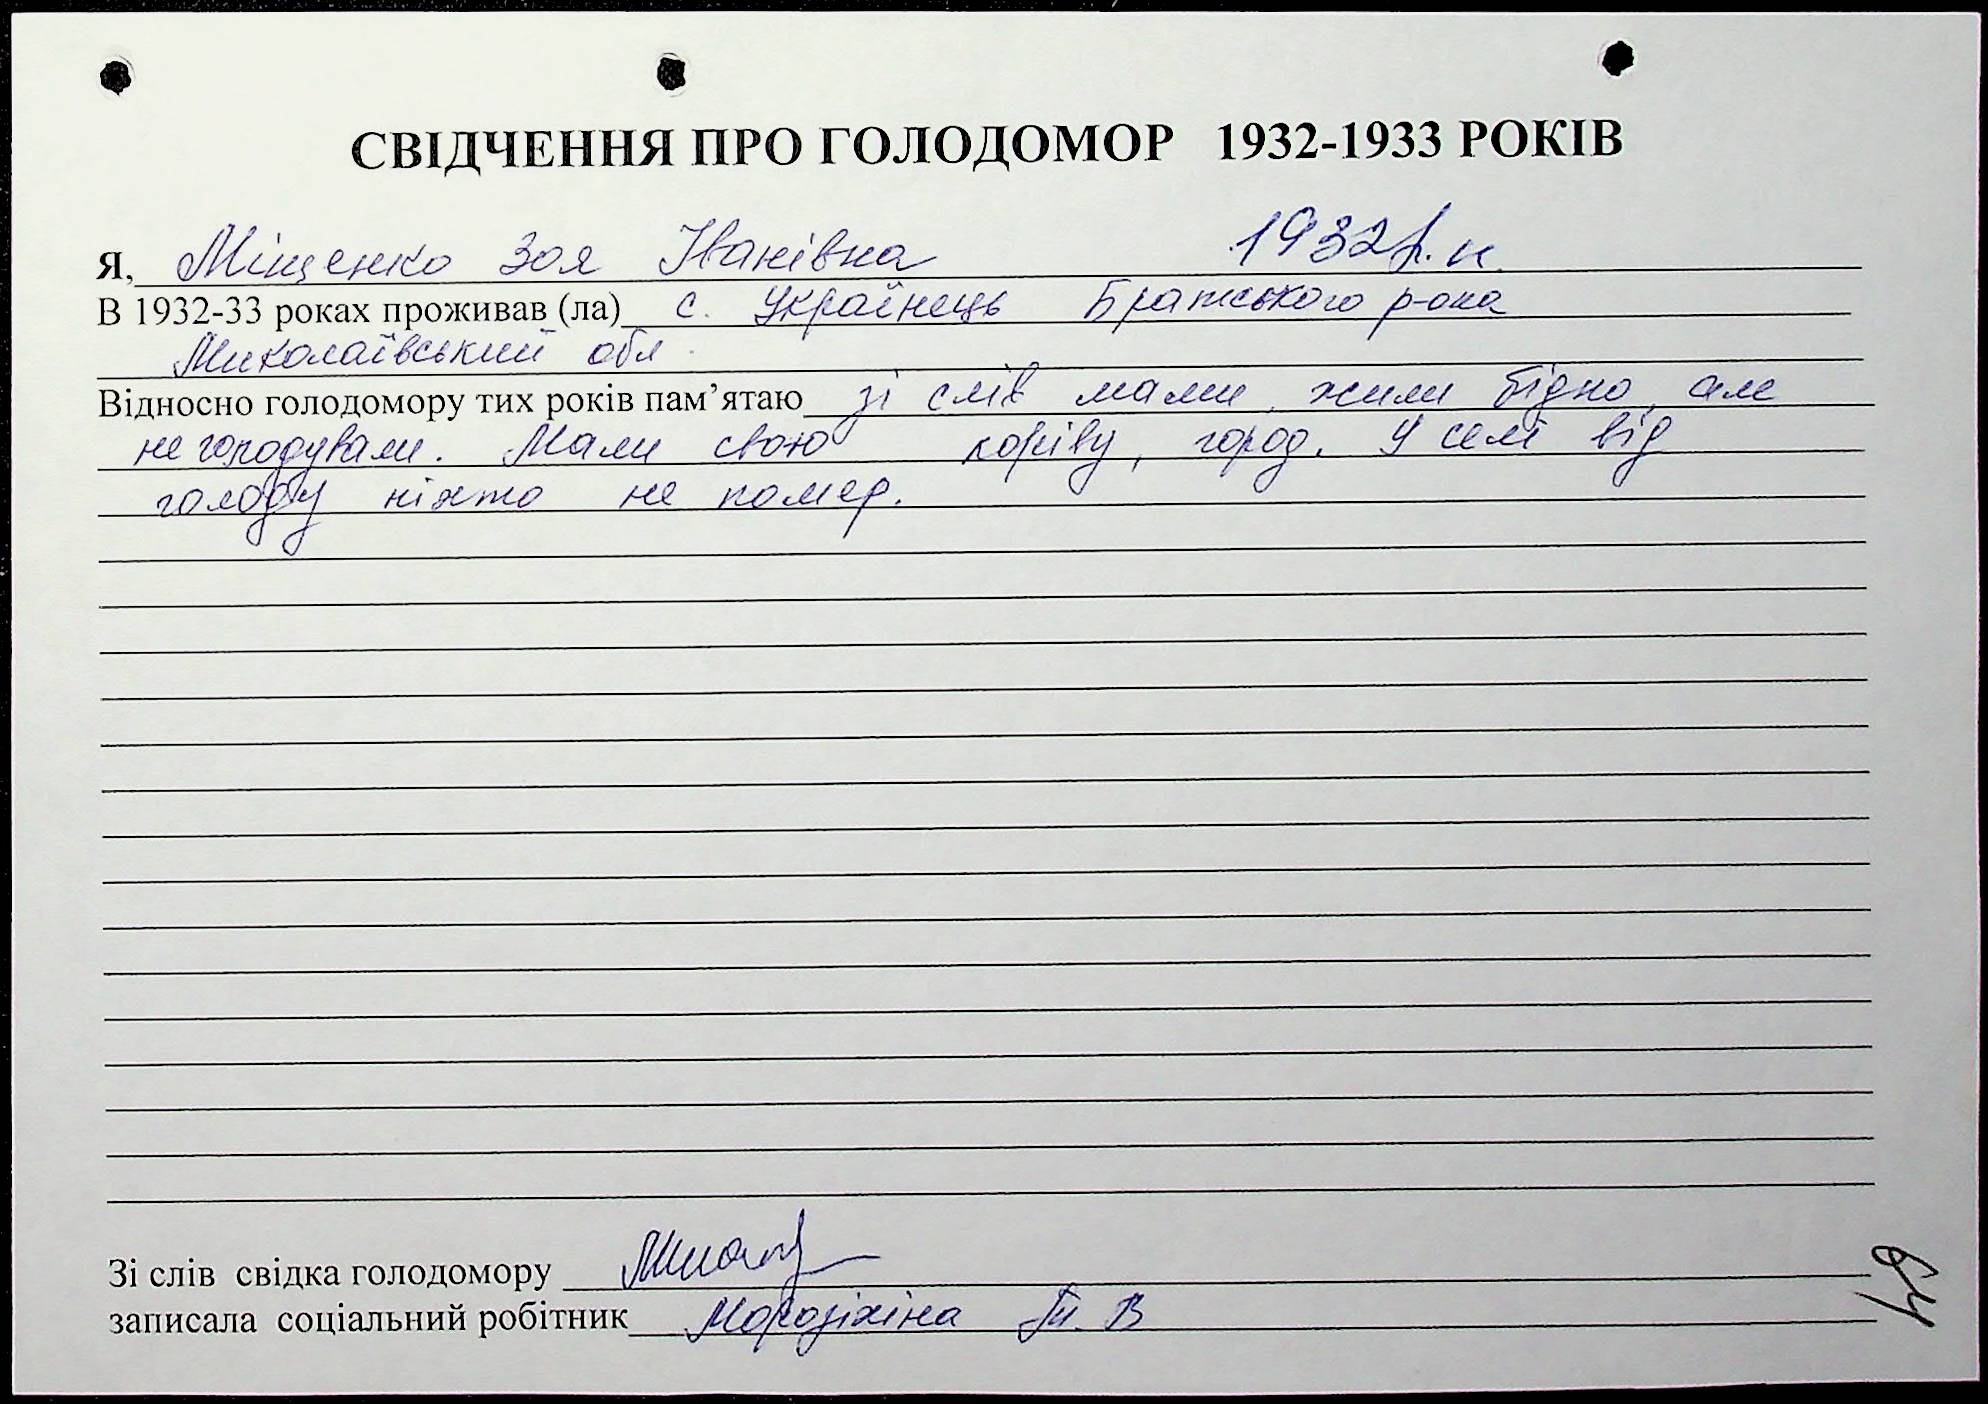 СВІДЧЕННЯ ПРО ГОЛОДОМОР 1932-1933 РОКІВ
Я, Міщенко Зоя Іванівна 1932 р.н.
В 1932-33 роках проживав (ла) с. Українець Братського р-она
Миколаївський обл.
Відносно голодомору тих років пам’ятаю зі слів мами, жили бідно, але
не голодували. Мали свою коріву, город. У селі від
голоду ніхто не помер.
Зі слів свідка голодомору
записала соціальний робітник Морозіхіна Т. В
64